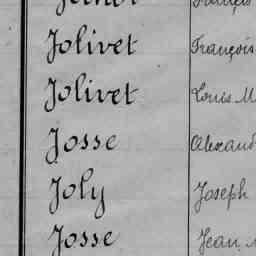 Jolivet François
Jolivet Louis M
Josse Alexand
Joly Joseph
Josse Jean